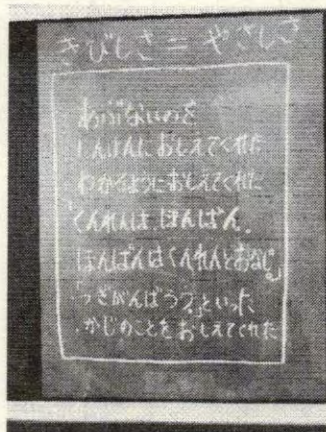 きびしさ=やさしさ
あぶないのを
しんけんにおしえてくれた
わかるようにおしえてくれた
「くんれんは、ほんばん。
ほんばんはくんれんとおなじ」
「つぎがんばろう」といった
かじのことをおしえてくれた